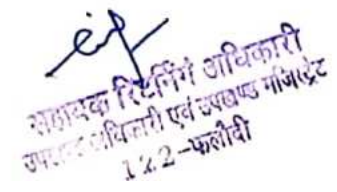 सहायक रिटर्निंग अधिकारी
उपखण्ड अधिकारी एवं उपखण्ड मजिस्ट्रेट
122-फलौदी